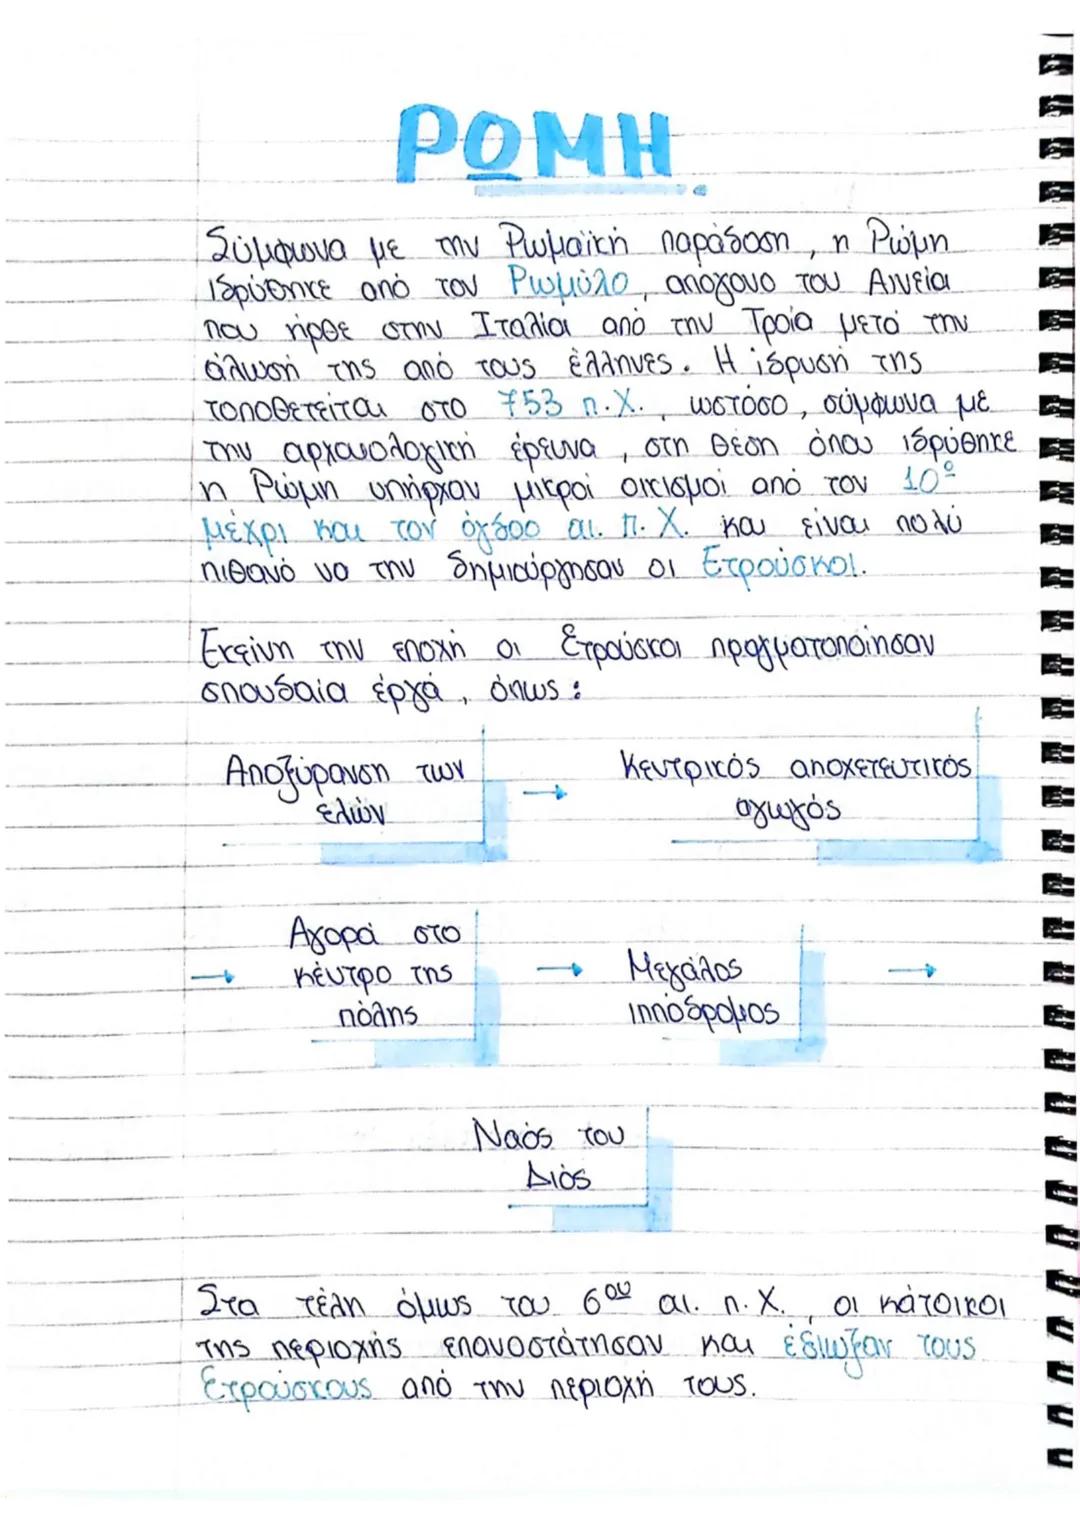 ΡΩΜΗ
Σύμφωνα με την Ρωμαϊκή παράδοση, η Ρώμη
ιδρύθηκε από τον Ρωμύλο, απόγονο του Αινεία
που ήρθε στην Ιταλία από την Τροία μετά την
άλωσή της από τους έλληνες. Η ίδρυσή της
τοποθετείται στο 753 π.Χ., ωστόσο, σύμφωνα με
την αρχαιολογική έρευνα, στη θέση όπου ιδρύθηκε
η Ρώμη υπήρχαν μικροί οικισμοί από τον 10º
μέχρι και τον όγδοο αι. π.Χ. και είναι πολύ
πιθανό να την δημιούργησαν οι Ετρούσκοι.
Εκείνη την εποχή οι Ετρούσκοι πραγματοποίησαν
σπουδαία έργά, όπως:
Αποξύρανση των
ελών
→
Κεντρικός αποχετευτικός
αγωγός
→
Αγορά στο
κέντρο της
πόλης
→
Μεγάλος
ιππόδρομος
→
Ναός του
Διός
Στα τέλη όμως του 6ου αι. π.Χ., οι κάτοικοι
της περιοχής επαναστάτησαν και έδιωξαν τους
Ετρούσκους από την περιοχή τους.